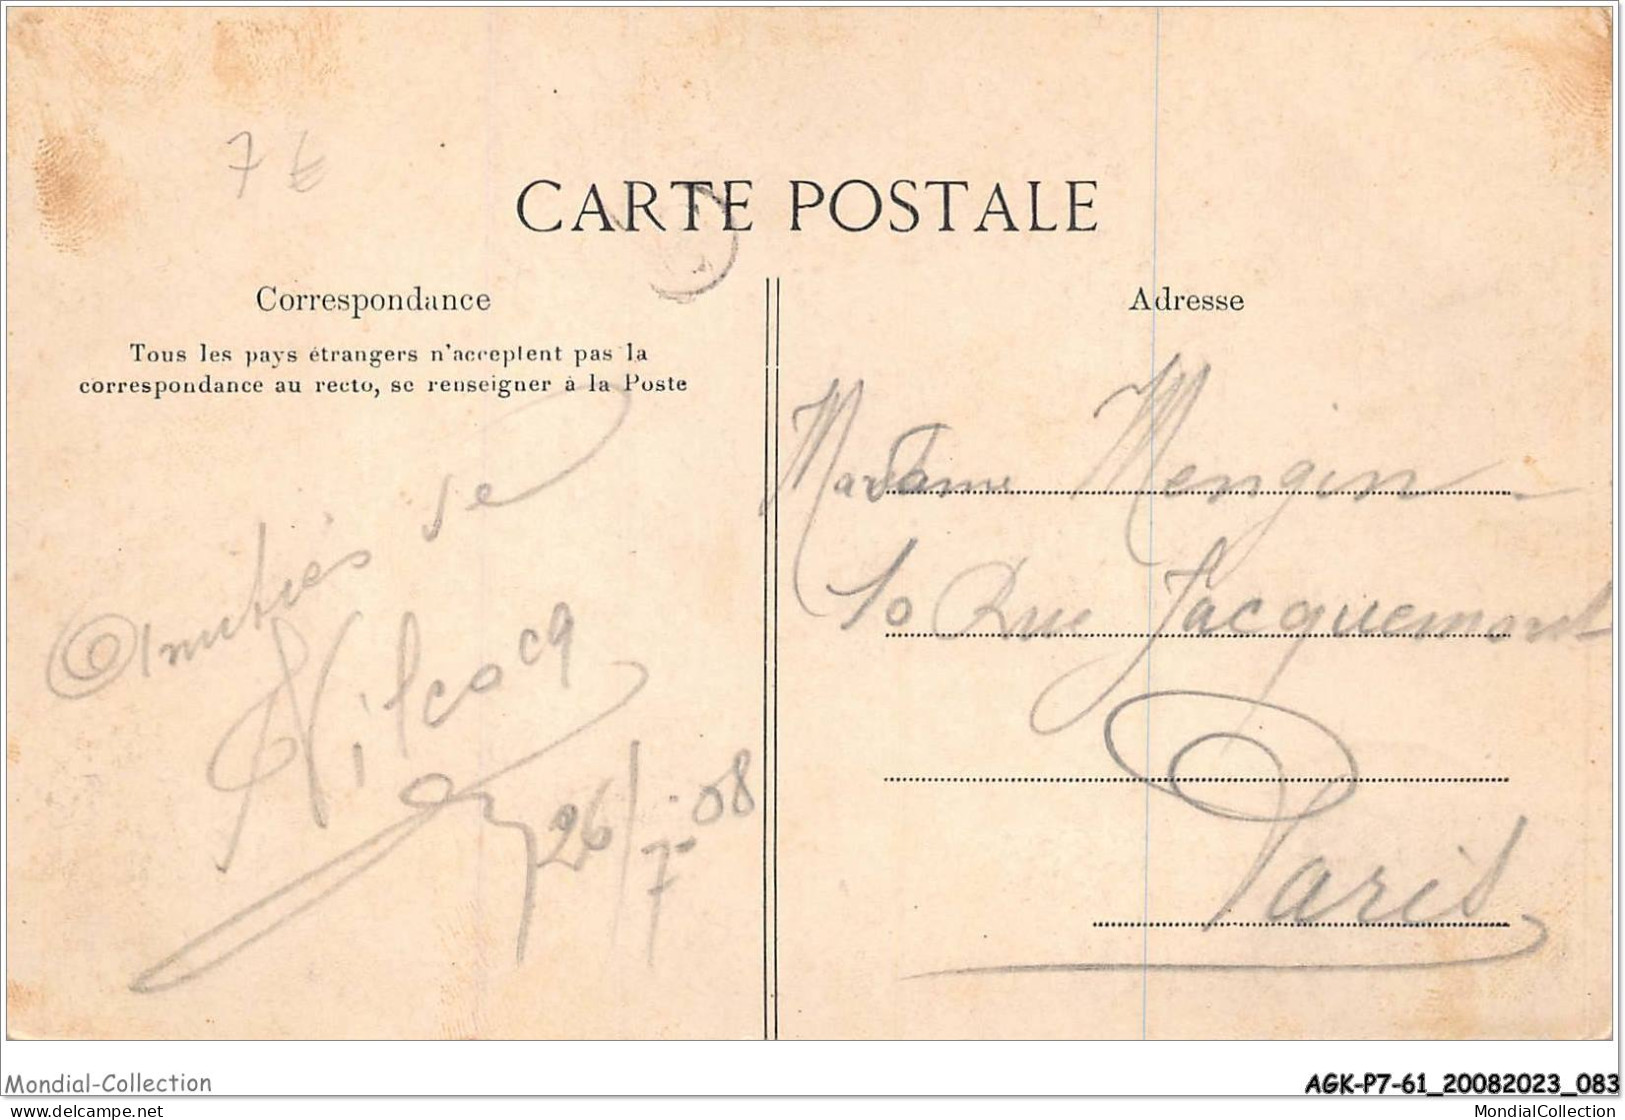 7 €
CARTE POSTALE
Correspondance
Tous les pays étrangers n'acceptent pas la
correspondance au recto, se renseigner à la Poste
Amitiés de
26/7-08
Adresse
Madame Mengin
10 Rue Jacquemont
Paris
Mondial-Collection
AGK-P7-61_20082023_083
www.delcampe.net
MondialCollection